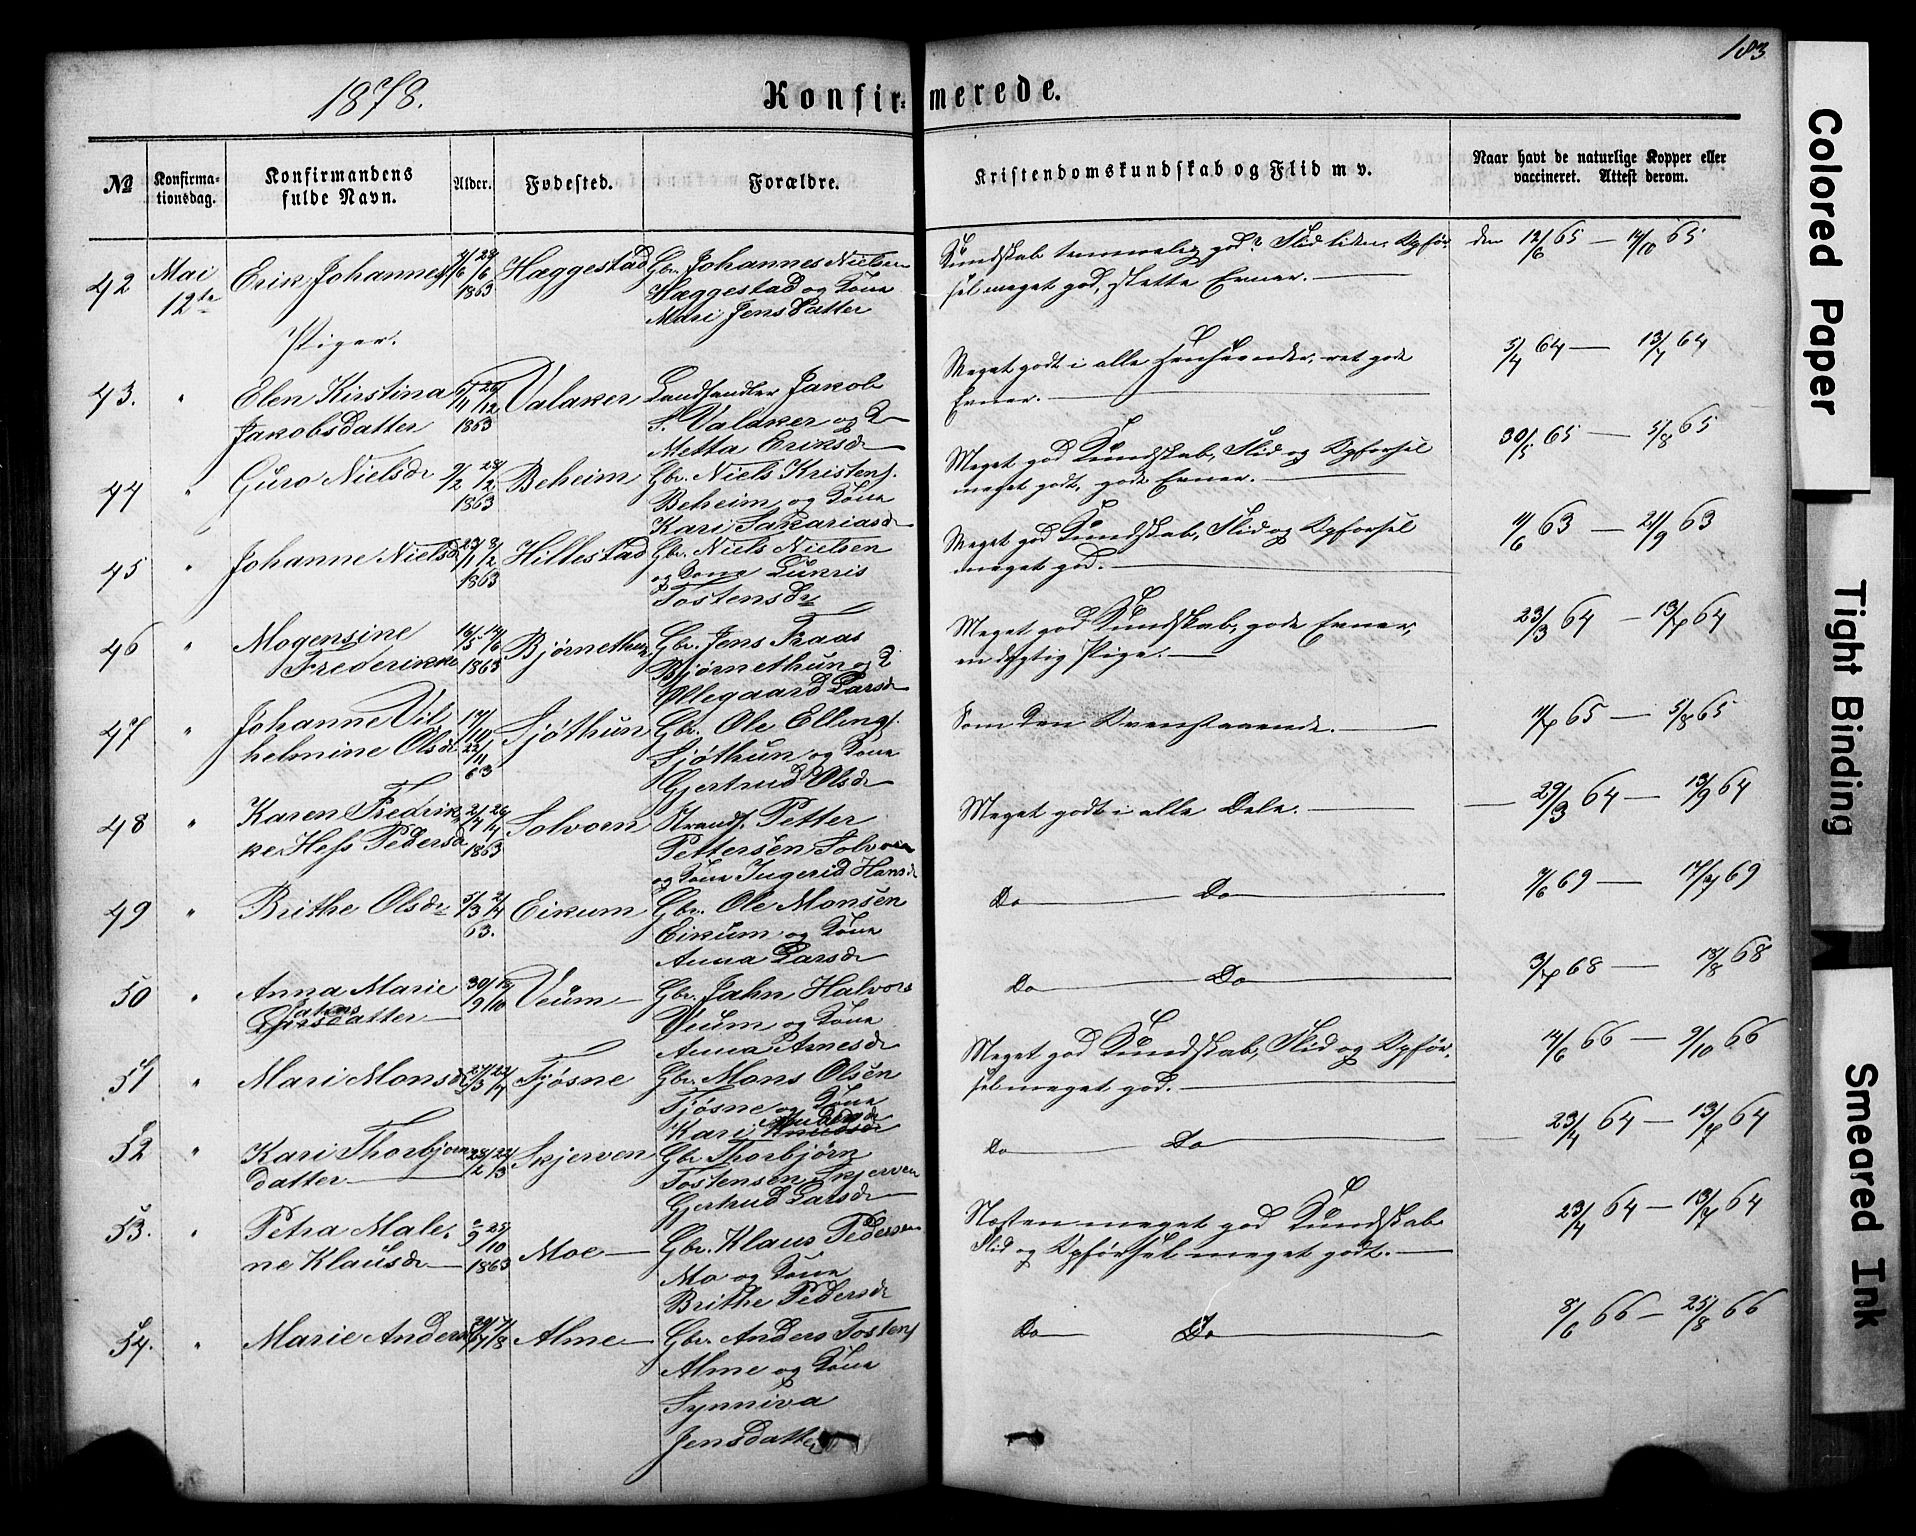 183
1878.
Konfirmerede.
№
Konfirma-
tionsdag.
Konfirmandens
fulde Navn.
Alder.
Fødested.
Forældre.
Kristendomskundskab og Flid m v.
Naar havt de naturlige Kopper eller
vaccineret. Attest derom.
42 Mai 12te Erik Johannes 1863 Haggestad Gbr. Johannes Nielsen
Hæggestad og Kone
Mari Jens Datter
Kundskab temmelig god? Flid liden, Opfør-
sel meget god, slette Evner.
den 12/6 65 — 14/10 65
Piger.
43. " Elen Kirstina
Jakobsdatter
1863
Valaker
Landhandler Jakob
S. Valaker og K
Metta Eriksdr
Meget godt i alle Henseender, ret gode
Evner.
5/4 64 — 13/7 64
44 " Guro Nielsdr 9/2 28/2
1863
Beheim
Gbr. Niels Kristens.
Beheim og Kone
Kari Sakariasdr
Meget god Kundskab, Flid og Opførsel
meget godt, gode Evner.
30/5 65 — 5/8 65
45 " Johanne Nielsd 23/1 8/2
1863
Hillestad
Gbr. Niels Nielsen
og Kone Lukris
Tostensdr
Meget god Kundskab, Flid og Opførsel
meget god.
11/6 63 — 21/9 63
46 " Mogensine
Frederikke
16/5 14/6
1863
Bjørnethun
Gbr. Jens Kaas
Bjørnethun og K
Øllegaard Larsdr
Meget god Kundskab, gode Evner,
en dygtig Pige.
23/3 64 — 13/7 64
47 " Johanne Vil-
helmine Olsdr
17/10
22/11
63
Sjøthun
Gbr. Ole Ellings.
Sjøthun og Kone
Gjertrud Olsdr
Som den Ovenstaaende.
11/7 65 — 5/8 65
48 " Karen Fredrik
ke Hess Pedersd
2/4 26/4
1863
Solvorn
Strands. Petter
Pettersen Solvorn
og Kone Ingerid Hansdr
Meget godt i alle Dele.
29/3 64 — 13/9 64
49 " Brithe Olsdr 5/3 2/4
63.
Eikum
Gbr. Ole Monsen
Eikum og Kone
Anna Larsdr
Do Do
7/6 69 — 17/7 69
50 " Anna Marie
Jahns
datter
30/9 18/10
Veum
Gbr. Jahn Halvors
Veum og Kone
Anna Arnesdr
Do Do
3/7 68 — 18/8 68
51 " Mari Monsdr 27/3 22/4
Fjøsne
Gbr. Mons Olsen
Fjøsne og Kone
Kari
Andersdr
Meget god Kundskab, Flid og Opfør-
sel meget god.
14/6 66 — 9/10 66
52 " Kari Thorbjørn
datter
28/2 22/3
Skjerven
Gbr Thorbjørn
Tostensen Skjerven
Gjertrud Larsdr
Do Do
23/4 64 — 13/7 64
53. " Petra Male-
ne Klausdr
25/10
1863
Moe
Gbr. Klaus Pedersen
Mo og Kone
Brithe Pedersdr
Næsten meget god Kundskab
Flid og Opførsel meget godt.
23/4 64 — 13/7 64
54. " Marie Anders
Alme
Gbr Anders Tostens
Alme og Kone
Synniva
Jensdatter
Do Do
8/6 66 — 25/8 66
Colored Paper
Tight Binding
Smeared Ink